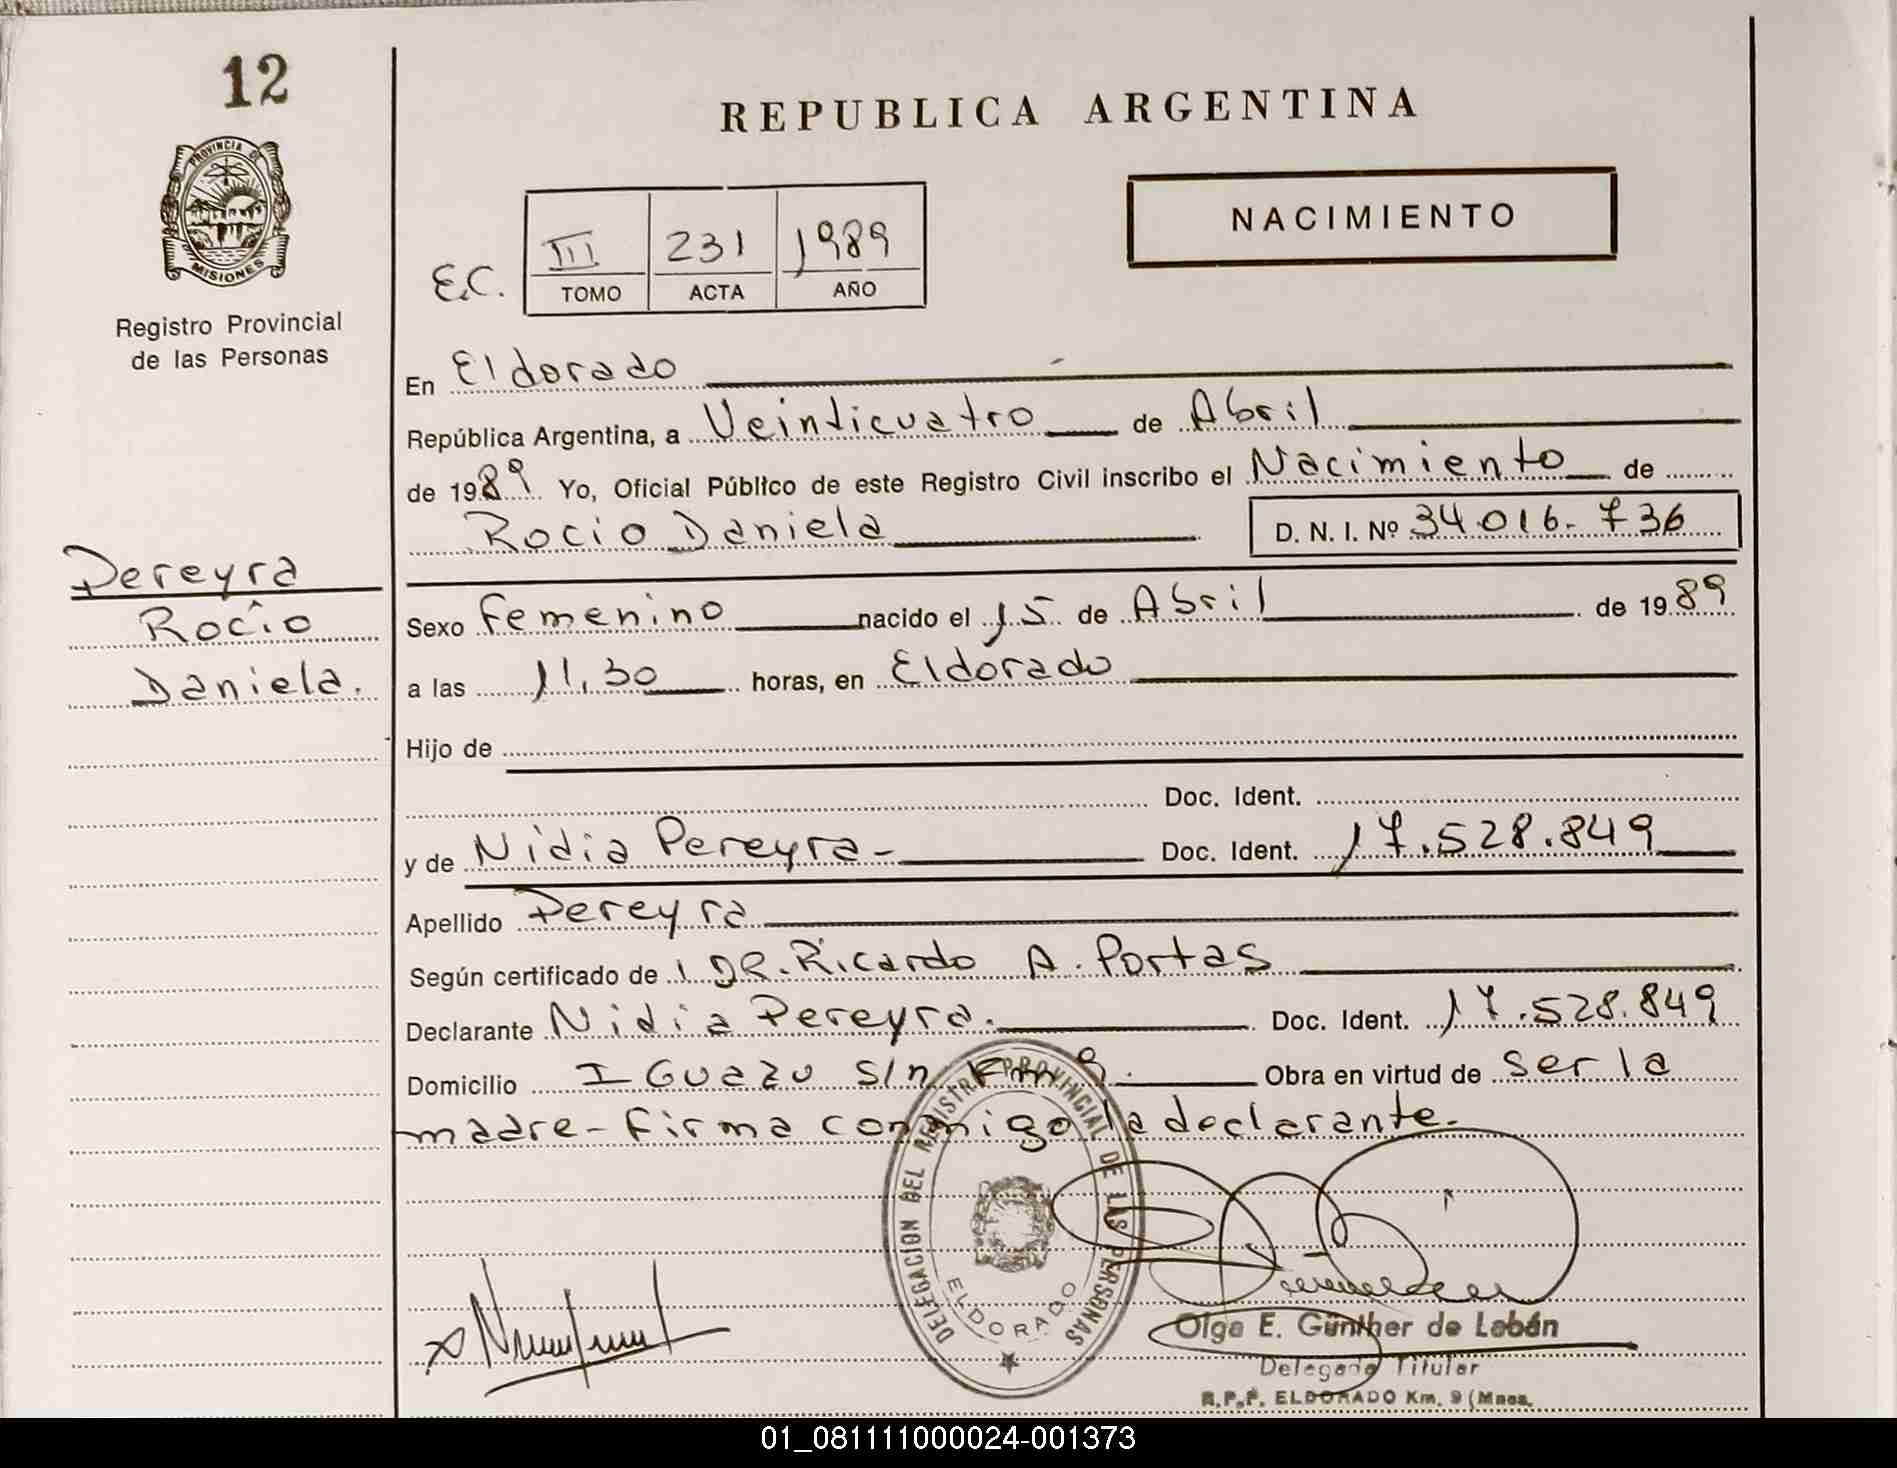 12
PROVINCIA DE
MISIONES
Registro Provincial
de las Personas
Pereyra
Rocío
Daniela.
REPUBLICA ARGENTINA
NACIMIENTO
E.C.
III 231 1989
TOMO ACTA AÑO
En Eldorado
República Argentina, a Veinticuatro de Abril
de 1989 Yo, Oficial Público de este Registro Civil inscribo el Nacimiento de
Rocio Daniela D. N. I. Nº 34.016.736
Sexo Femenino nacido el 15 de Abril de 1989
a las 11,30 horas, en Eldorado
Hijo de
Doc. Ident.
y de Nidia Pereyra- Doc. Ident. 17.528.849
Apellido Pereyra
Según certificado de DR. Ricardo A. Portas
Declarante Nidia Pereyra. Doc. Ident. 17.528.849
Domicilio IGuazu S/n Km 9. Obra en virtud de ser la
madre - firma conmigo la declarante.
DELEGACION DEL REGISTRO PROVINCIAL DE LAS PERSONAS
ELDORADO
Olga E. Günther de Lebán
Delegada Titular
R.P.P. ELDORADO Km. 9 (Mnes.
01_081111000024-001373